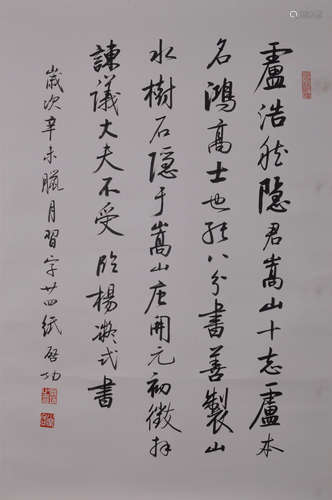 盧浩然隱君嵩山十志盧本
名鴻高士也能八分書善製山
水樹石隐于嵩山庄開元初徵拜
諫議大夫不受 临楊凝式書
歲次辛未臘月習字廿四紙启功